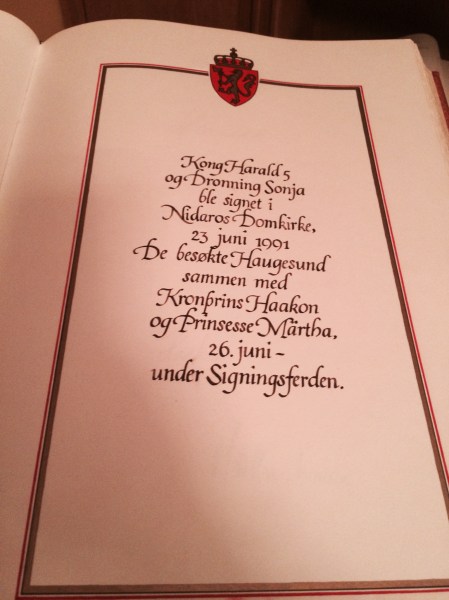 Kong Harald 5
og Dronning Sonja
ble signet i
Nidaros Domkirke,
23 juni 1991
De besøkte Haugesund
sammen med
Kronprins Haakon
og Prinsesse Märtha,
26. juni –
under Signingsferden.